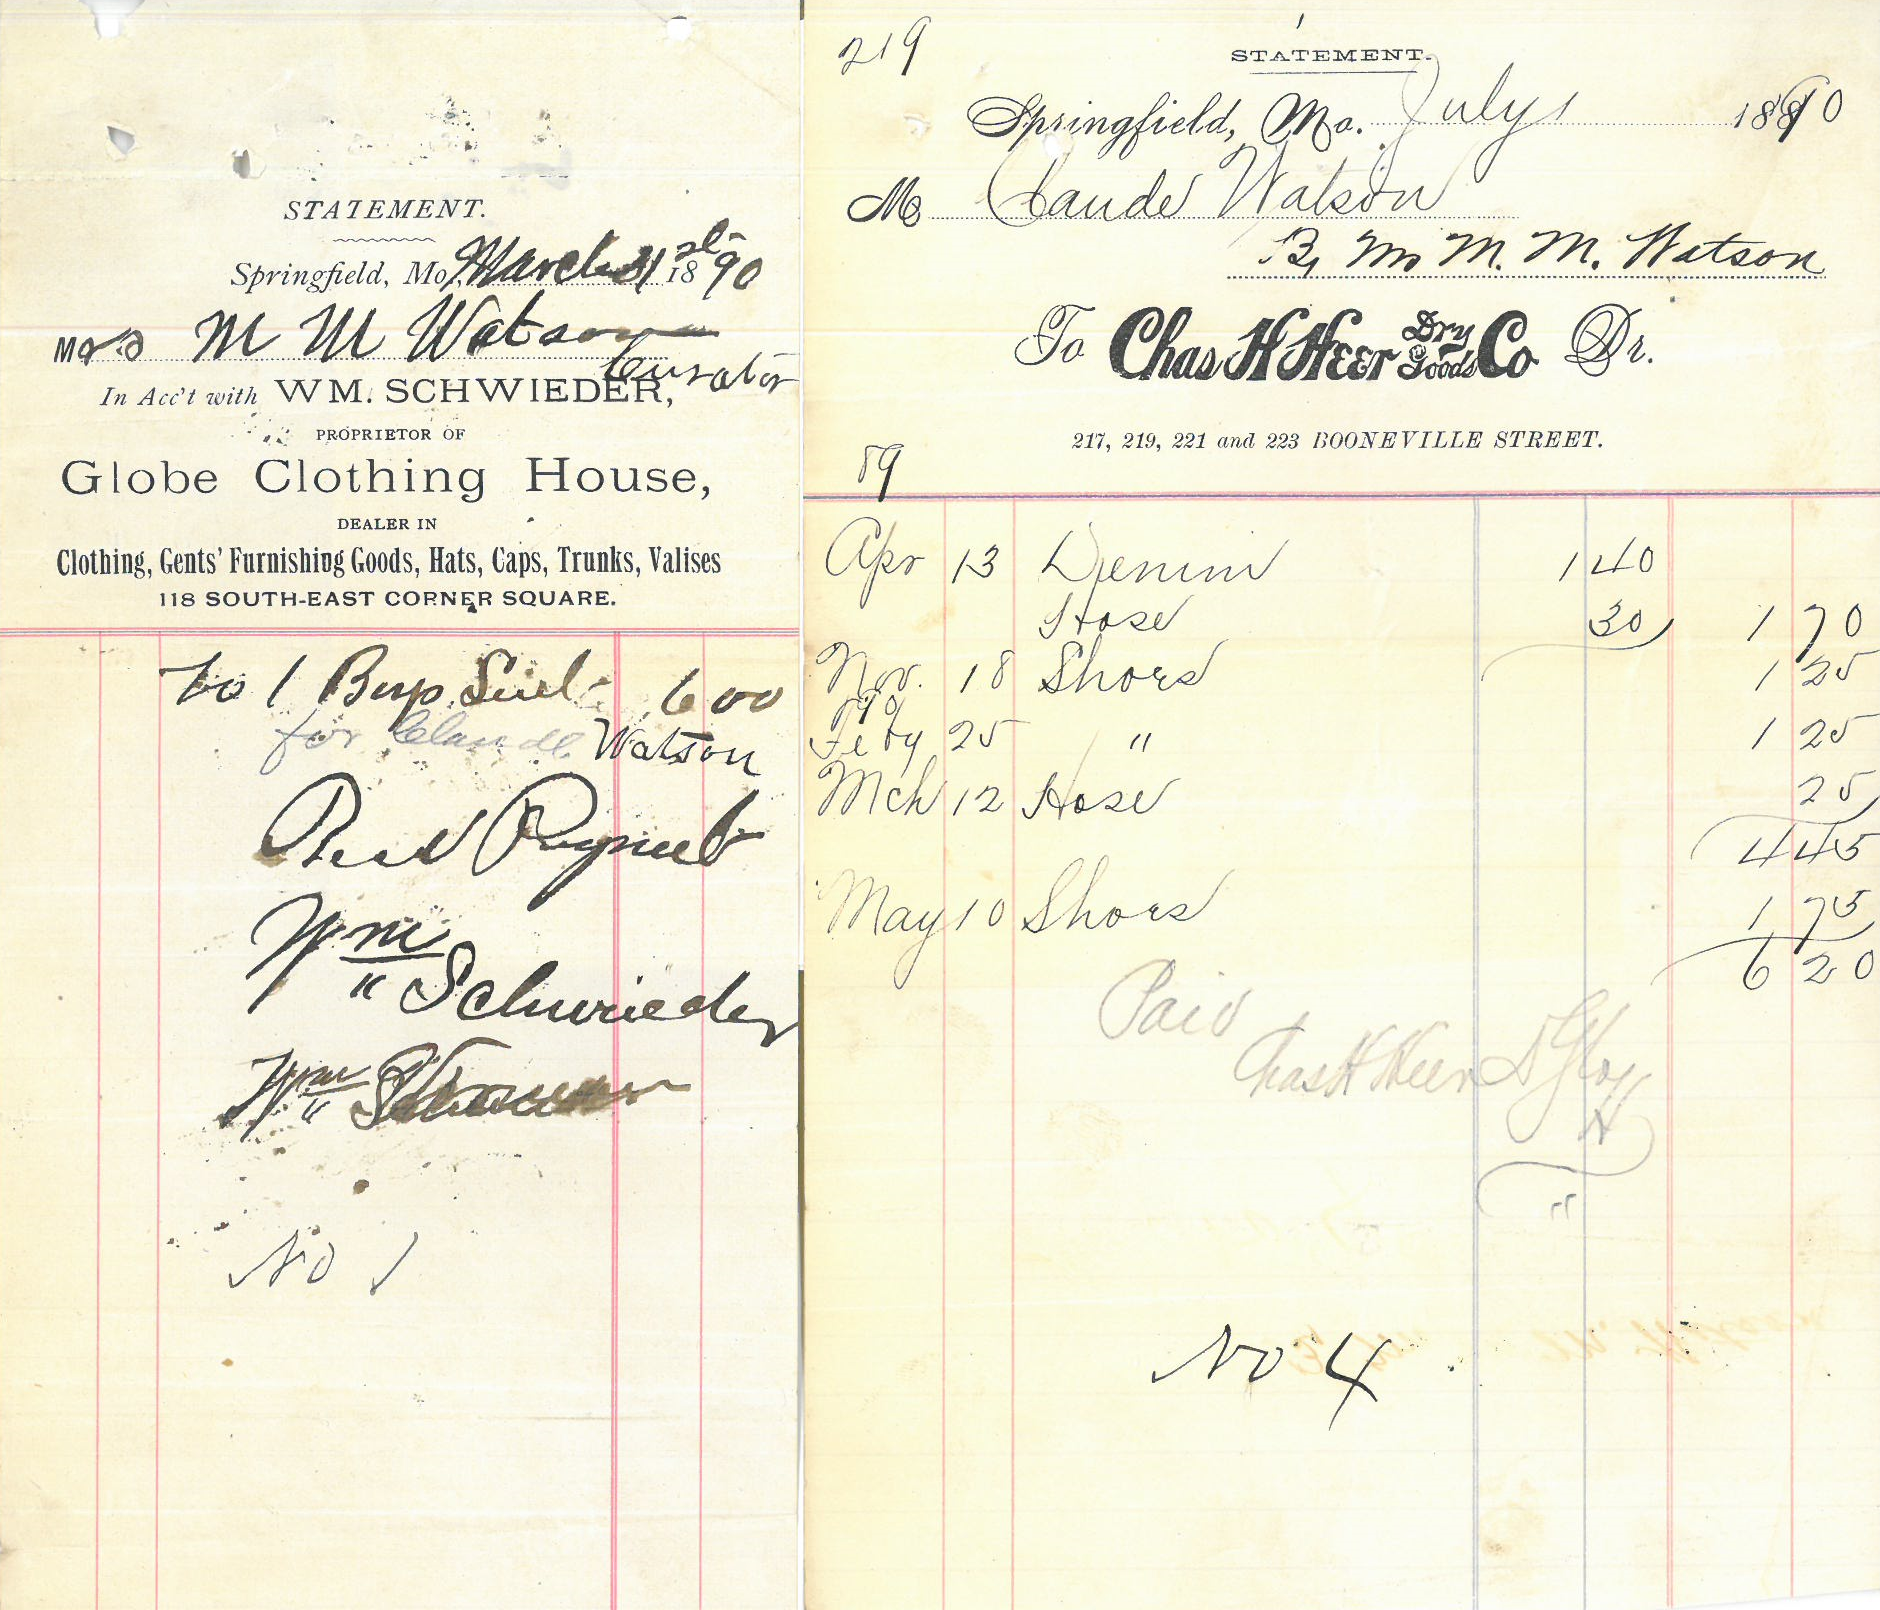 STATEMENT.
Springfield, Mo, March 31st 1890
Mrs M M Watson
Curator
In Acc't with WM. SCHWIEDER,
PROPRIETOR OF
Globe Clothing House,
DEALER IN
Clothing, Gents' Furnishing Goods, Hats, Caps, Trunks, Valises
118 SOUTH-EAST CORNER SQUARE.
To 1 Boys Suit 6 00
for Claude Watson
Recd Payment
Wm Schwieder
Wm
No 1
219
STATEMENT.
Springfield, Mo. July 1 1890
M Claude Watson
By Mrs M. M. Watson
To Chas H Heer Dry Goods Co Dr.
217, 219, 221 and 223 BOONEVILLE STREET.
89
Apr 13 Denim 1 40
Hose 30 1 70
Nov. 18 Shoes 1 25
90
Feby 25 " 1 25
Mch 12 Hose 25
4 45
May 10 Shoes 1 75
6 20
Paid
Chas H Heer D G Co
H
No 4